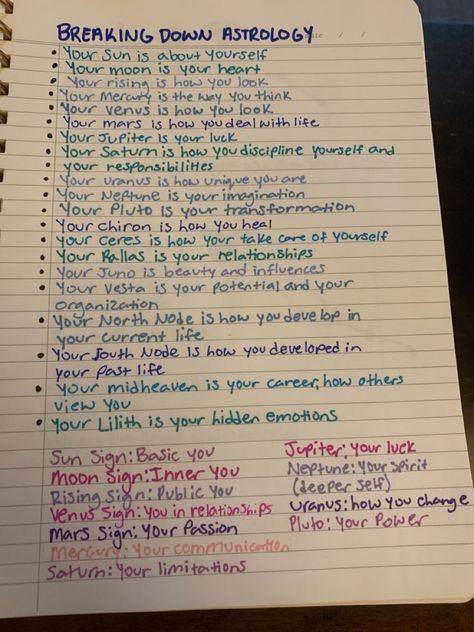 BREAKING DOWN ASTROLOGY
Date / /
• Your Sun is about yourself
• Your moon is your heart
• Your rising is how you look
• Your Mercury is the way you think
• Your venus is how you look
• Your mars is how you deal with life
• Your Jupiter is your luck
• Your Saturn is how you discipline yourself and
your responsibilities
• Your uranus is how unique you are
• Your Neptune is your imagination
• Your Pluto is your transformation
• Your Chiron is how you heal
• Your Ceres is how your take care of yourself
• Your Pallas is your relationships
• Your Juno is beauty and influences
• Your Vesta is your potential and your
organization
• Your North Node is how you develop in
your current life
• Your South Node is how you developed in
your past life
• Your midheaven is your career, how others
view you
• Your Lilith is your hidden emotions
Sun Sign: Basic you
Moon Sign: Inner You
Rising Sign: Public You
Venus Sign: You in relationships
Mars Sign: Your Passion
Mercury: Your communication
Saturn: Your limitations
Jupiter: Your luck
Neptune: Your Spirit
(deeper self)
Uranus: how you change
Pluto: Your Power